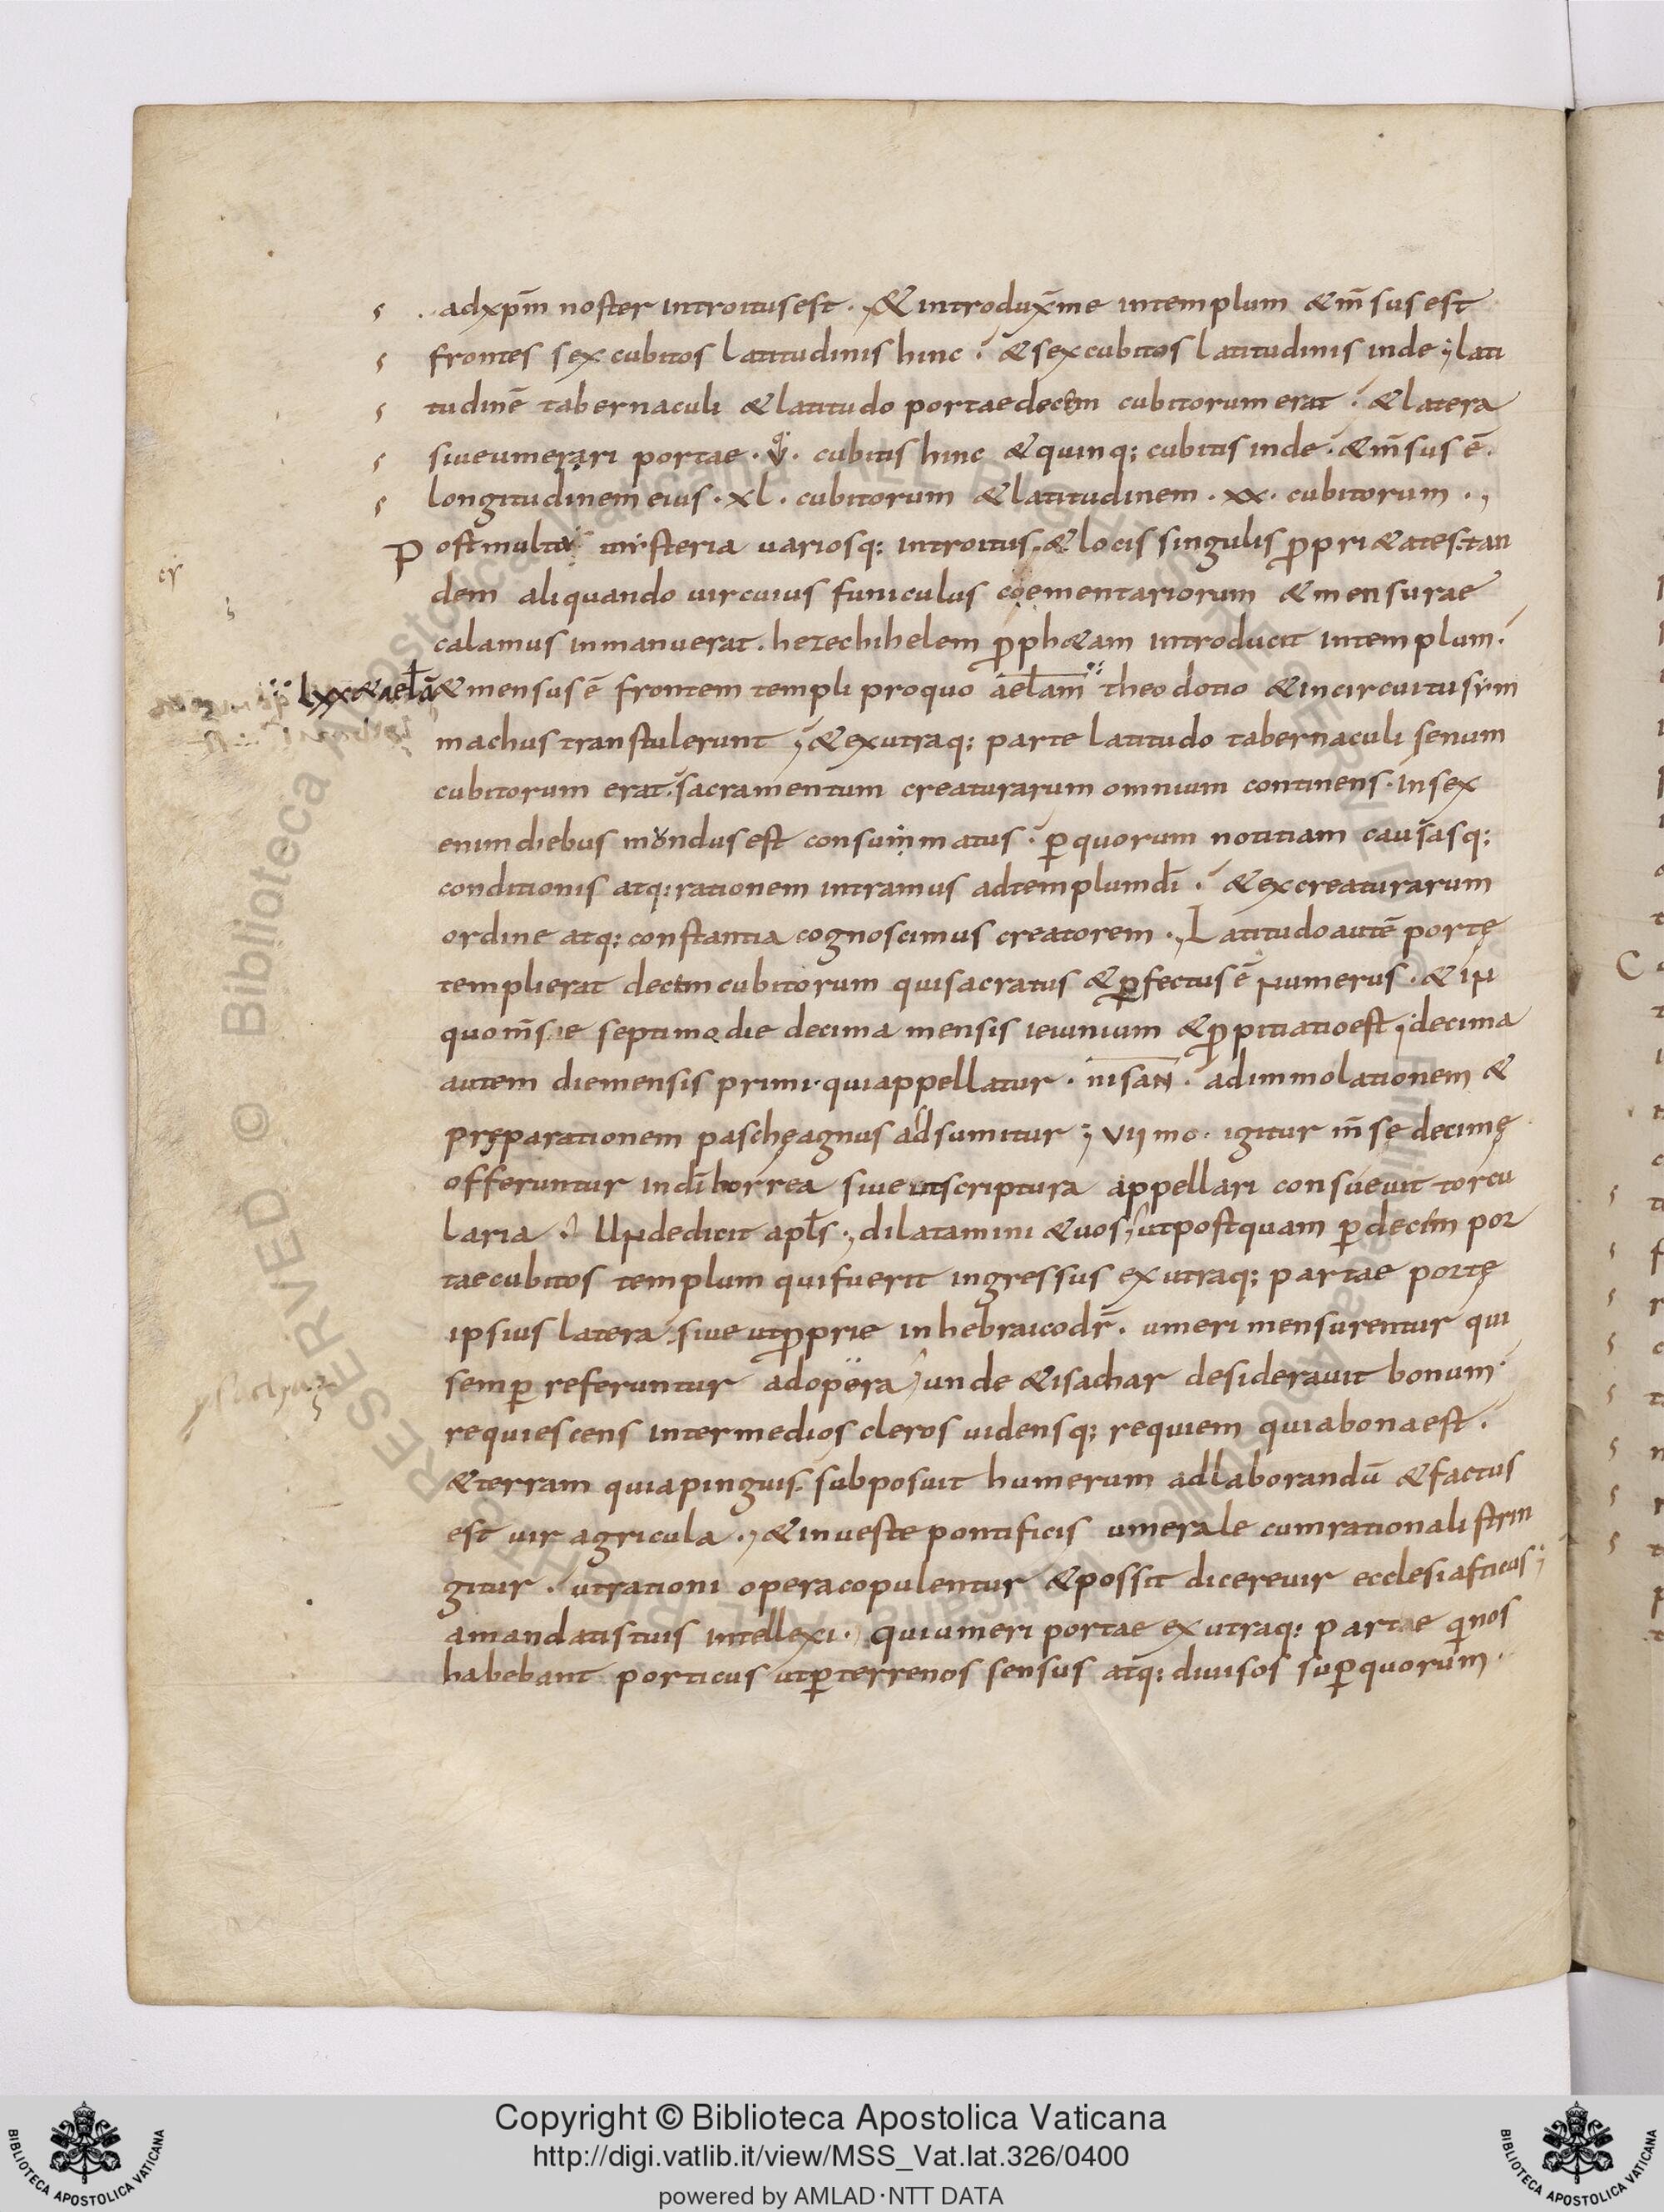 adxp̄m noster introitus est. & introdux̄ me intemplum & m̄sus est
frontes sex cubitos latitudinis hinc. & sex cubitos latitudinis inde; lati
tudinē tabernaculi & latitudo portae decem cubitorum erat. & latera
siue umerari portae. v. cubitis hinc & quinq; cubitis inde. & m̄sus ē.
longitudinem eius. xl. cubitorum & latitudinem. xx. cubitorum.,
Post multa misteria uariosq; introitus. & locis singulis ꝓpri&ates. tan
dem aliquando uir cuius funiculus coementariorum & mensurae
calamus inmanu erat. hezechihelem ꝓph&am introducit intemplum.
lxx & aelā
& mensus ē frontem templi pro quo aelam theodotio & incircuitu sym
machus transtulerunt; & ex utraq; parte latitudo tabernaculi senum
cubitorum erat. sacramentum creaturarum omnium continens. in sex
enim diebus mundus est consummatus. ꝑ quorum notitiam causasq;
conditionis atq; rationem intramus ad templum dī. & ex creaturarum
ordine atq; constantia cognoscimus creatorem., Latitudo autē portę
templi erat decem cubitorum qui sacratus & ꝑfectus ē numerus. & in
quo m̄se septimo die decima mensis ieiunium & ꝓpitiatio est; decima
autem die mensis primi. qui appellatur. nisan. ad immolationem &
pręparationem paschę agnus adsumitur; vii mo. igitur m̄se decimę
offeruntur in dī horrea siue ut scriptura appellari consueuit torcu
laria. Unde dicit apłs., dilatamini & uos, ut postquam ꝑ decem por
tae cubitos templum qui fuerit ingressus ex utraq; partae portę
ipsius latera. siue ut ꝓprie in hebraico dr̄. umeri mensurentur qui
semꝑ referuntur ad opera, unde & isachar desiderauit bonum.
requiescens inter medios cleros uidensq; requiem quia bona est.
& terram quia pinguis. subposuit humerum ad laborandū & factus
est uir agricula., & in ueste pontificis umerale cum rationali strin
gitur. ut rationi opera copulentur & possit dicere uir ecclesiasticus;
a mandatis tuis intellexi. qui umeri portae ex utraq; partae qinos
habebant porticus ut ꝑ terrenos sensus atq; diuisos suꝑ quorum.
RESERVED © Biblioteca Apostolica Vaticana
Copyright © Biblioteca Apostolica Vaticana
http://digi.vatlib.it/view/MSS_Vat.lat.326/0400
powered by AMLAD·NTT DATA
BIBLIOTECA APOSTOLICA VATICANA
BIBLIOTECA APOSTOLICA VATICANA